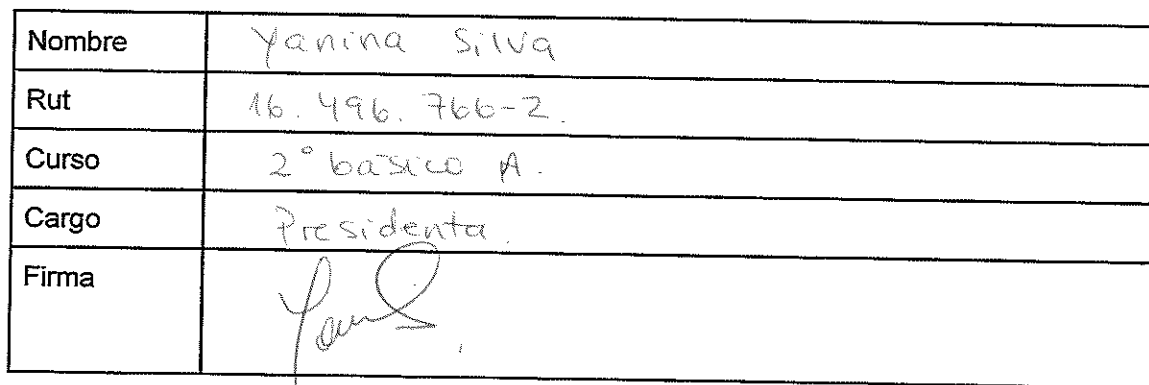 Nombre Yanina Silva
Rut 16.496.766-2.
Curso 2° básico A.
Cargo Presidenta.
Firma